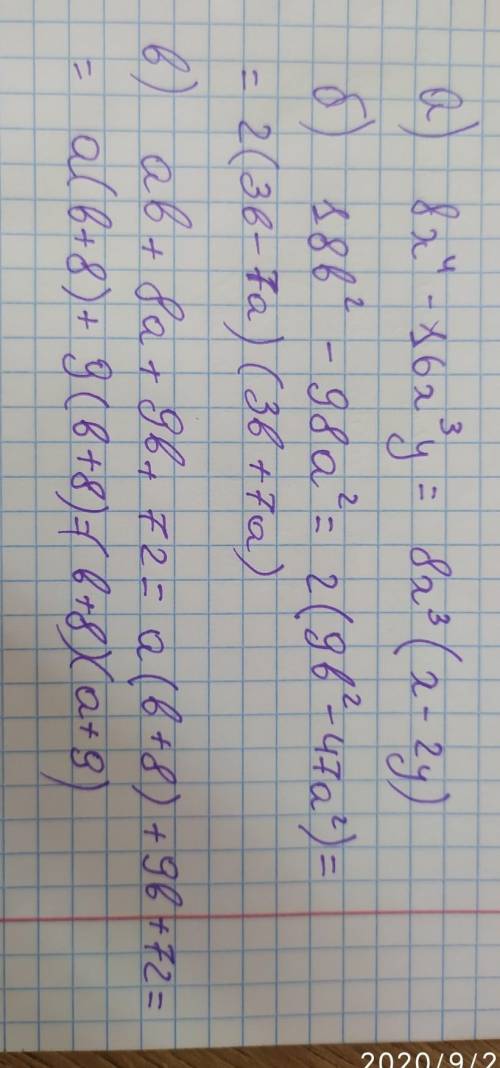 а) 8x⁴ - 16x³y = 8x³(x - 2y)
б) 18b² - 98a² = 2(9b² - 47a²) =
= 2(3b - 7a)(3b + 7a)
в) ab + 8a + 9b + 72 = a(b + 8) + 9b + 72 =
= a(b + 8) + 9(b + 8) = (b + 8)(a + 9)
2020/9/2